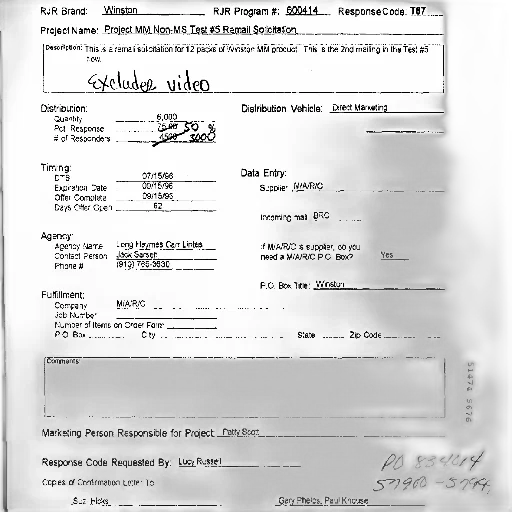 RJR Brand: Winston RJR Program #: 600414 Response Code: T67
Project Name: Project MM Non-MS Test #5 Remail Solicitation
Description: This is a remail solicitation for 12 packs of Winston MM product. This is the 2nd mailing in the Test #5
flow.
Excludes video
Distribution: Distribution Vehicle: Direct Marketing
Quantity 6,000
Pct. Response 50 %
# of Responders 3000
Timing: Data Entry:
DTS 07/15/96
Expiration Date
Supplier M/A/R/C
Offer Complete 09/15/96
Days Offer Open 62
Incoming mail BRC
Agency:
Agency Name Long Haymes Carr Lintas
If M/A/R/C is supplier, do you
Contact Person Jack
need a M/A/R/C P.O. Box? Yes
Phone # (910) 765-3630
P.O. Box Title: Winston
Fulfillment:
Company M/A/R/C
Job Number
Number of Items on Order Form
P.O. Box City State Zip Code
Comments:
51474 5676
Marketing Person Responsible for Project: Patty Scott
Response Code Requested By: Lucy Russell
Copies of Confirmation Letter To
Suz Hicks Gary Phelps, Paul Knouse